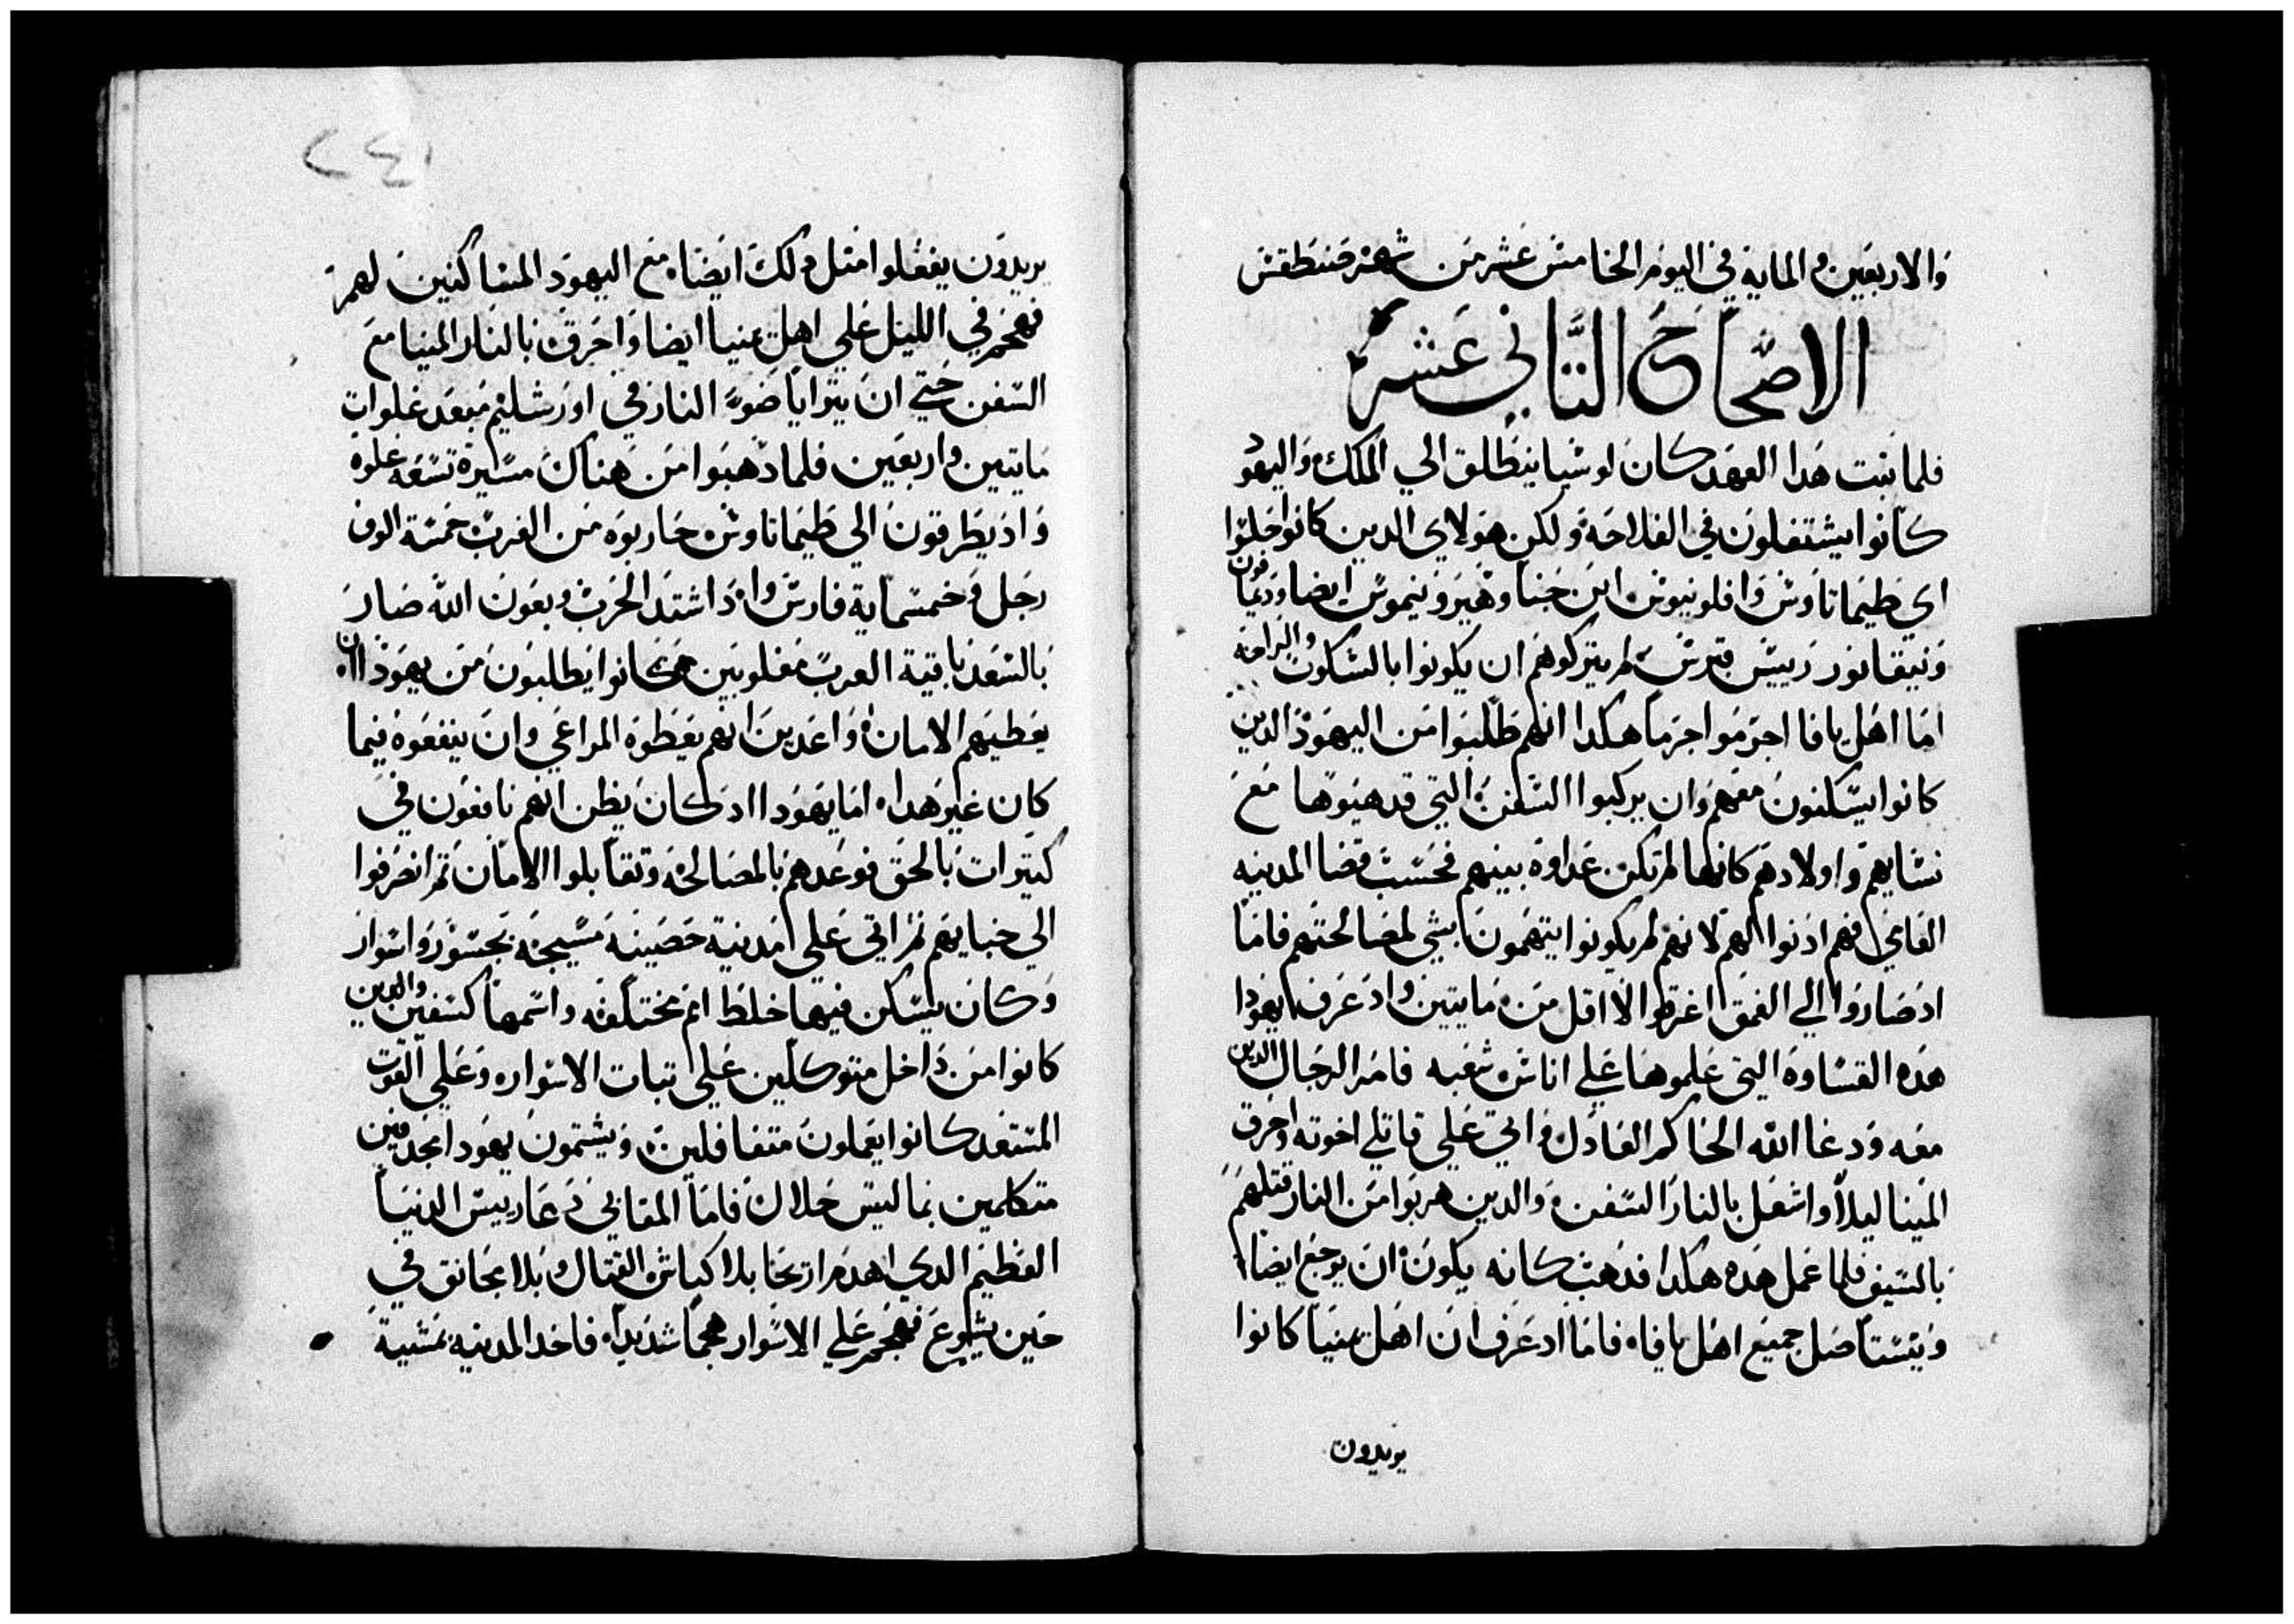 والاربعين والمايه في اليوم الخامس عشر من شهر صنطقس
الاصحاح التاني عشر
فلما ثبت هدا العهد كان لوشيا ينطلق الي الملك واليهود
كانوا يشتغلون في الفلاحه ولكن هولاي الدين كانوا خلوا
اي طيماتاوس وافلونيوس ابن جنا وهيرونيموس ايضا وديمافون
ونيقانور رييس قبرس لم يتركوهم ان يكونوا بالسكوت والراحه
اما اهل يافا اجرموا جرما هكدا انهم طلبوا من اليهود الدين
كانوا يسكنون معهم وان يركبوا السفن التي قد هيوها مع
نسايهم واولادهم كانها لم تكن عداوه بينهم فحسب قضا المدينه
العام فهم ادنوا لهم لانهم لم يكونوا يتهمون بشي لمصالحتهم فاما
اد صاروا الي العمق اغرقوا لا اقل من مايتين واد عرف يهودا
هده القساوه التي علموها علي اناس شعبه فامر الرجال الدين
معه ودعا الله الحاكم العادل واتي علي قاتلي اخوته واحرق
المينا ليلا واشعل بالنار السفن والدين هربوا من النار قتلهم
بالسيف فلما عمل هده هكدا فدهب كانه يكون ان يرجع ايضا
ويستاصل جميع اهل يافا فاما اد عرف ان اهل منيا كانوا
يريدون
٢٤١
يريدون يفعلوا امثل دلك ايضا مع اليهود المساكنين لهم
فهجم في الليل علي اهل منيا ايضا واحرق بالنار المينا مع
السفن حتي ان يترايا ضو النار في اورشليم مبعد غلوات
مايتين واربعين فلما دهبوا من هناك مسيرة تسعه غلوه
واد يطرقون الي طيماتاوس حاربوه من العرب خمسة الوف
رجل وخمسماية فارس واد اشتد الحرب وبعون الله صار
بالسعد باقية العرب مغلوبين كانوا يطلبون من يهودا ان
يعطيهم الامان واعدين انهم يعطوه المراعي وان ينفعوه فيما
كان غير هدا اما يهودا اد كان يظن انهم نافعون في
كتيرات بالحق فوعدهم بالمصالحه وتقابلوا الامان تم انصرفوا
الي خبايهم تم اتي علي مدينة حصينه مسيجه بجسور واسوار
وكان يسكن فيها خلط امم مختلفه واسمها كسفين والدين
كانوا من داخل متوكلين علي تبات الاسوار وعلي القوت
المستعد كانوا يعملون متغافلين ويشتمون يهودا مجدفين
متكلمين بما ليس حلال فاما المقابي دعا رييس الدنيا
العظيم الدي اهدم اريحا بلا كباش القتال وبلا مجانق في
حين يشوع فهجم علي الاسوار هجما شديدا فاخد المدينه بمشية